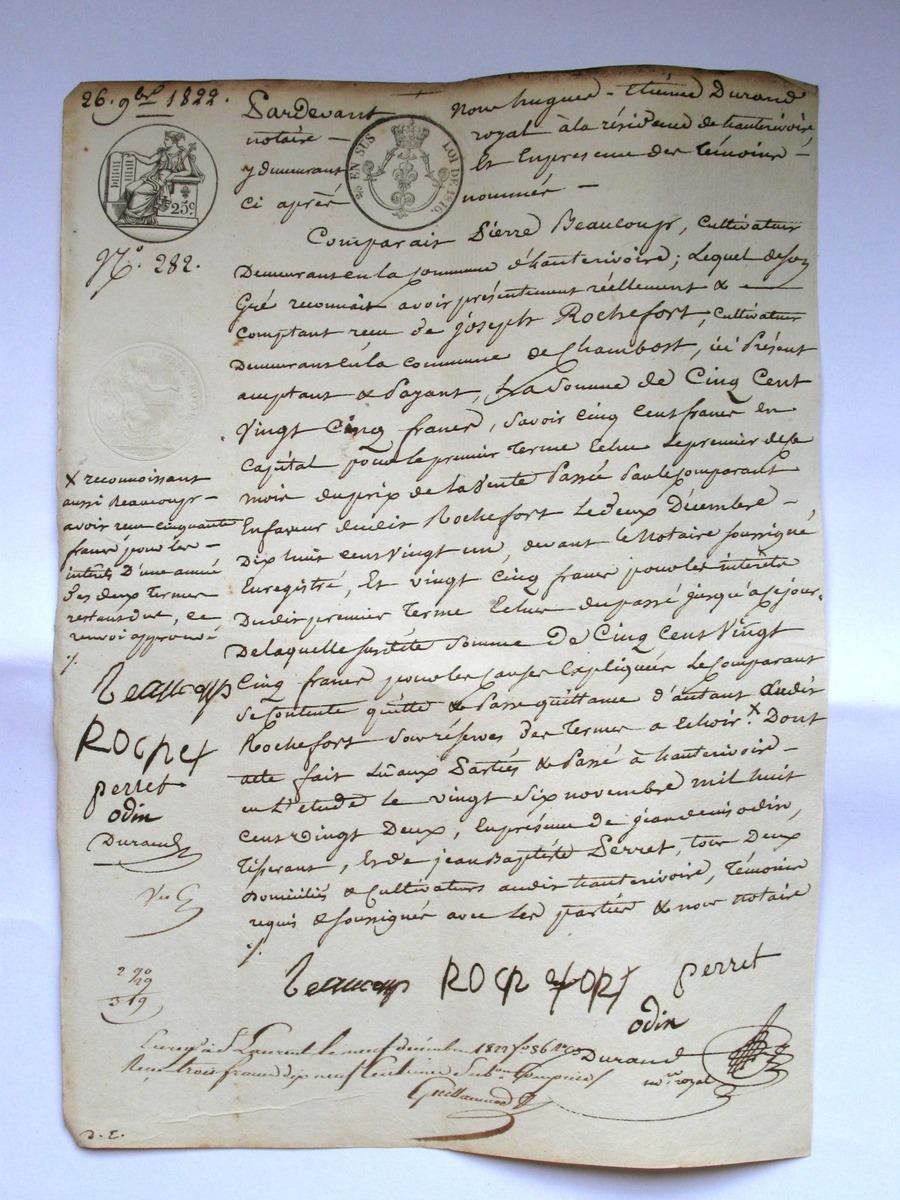 26. 9bre 1822.
Pardevant Nous hugues-Etienne Durand
notaire royal à la résidence de hauterivoire,
y demeurant Et En présence des témoins
Ci après nommés
25 EN SUS LOI DE 1816.
25c.
No. 282.
Comparait Pierre Beaucoup, Cultivateur
Demeurant en la Commune d'hauterivoire; Lequel de son
Gré reconnait avoir présentement réellement &
Comptant reçu de joseph Rochefort, Cultivateur
Demeurant en la commune de Chambost, ici Présent
acceptant & Payant, La Somme de Cinq Cent
Vingt Cinq francs, Savoir cinq Cent francs en
Capital pour le premier Terme Echu le premier de ce
mois du prix de la Vente Passée Par le Comparant
En faveur dudit Rochefort Le Deux Décembre
Dix huit cent Vingt un, devant le Notaire soussigné
Enregistré, Et Vingt Cinq francs pour les intérêts
Dudit premier Terme Echu du passé jusqu'à ce jour.
De laquelle susdite Somme De Cinq Cent Vingt
Cinq francs pour les causes Expliquées Le Comparant
Se Contente quitte & Passe quittance d'autant Audit
Rochefort Sous réserves des Termes a Echoir. X Dont
acte fait Lu aux Parties & Passé à hauterivoire
en L'étude le vingt Six novembre mil huit
Cent Vingt Deux, En présence de jean denis odin,
Tisserant, Et de jean Baptiste Perret, tous Deux
Domiciliés & Cultivateurs audit hauterivoire, Témoins
requis & soussignés avec les parties & nous notaire
X reconnoissant
aussi Beaucoup
avoir reçu cinquante
francs pour les
intérêts D'une année
Des deux Termes
restans dus, ce
renvoi approuvé
Beaucoup
ROCHEf
perret
odin
Durand
2 90
29
3 19
Beaucoup ROCHEfORT perret
odin
Durand
nore royal
Enregé à St Laurent le neuf décembre 1822 fo 86
Reçu trois francs dix neuf Centimes Subon Comprise
Guillaumod
D. E.